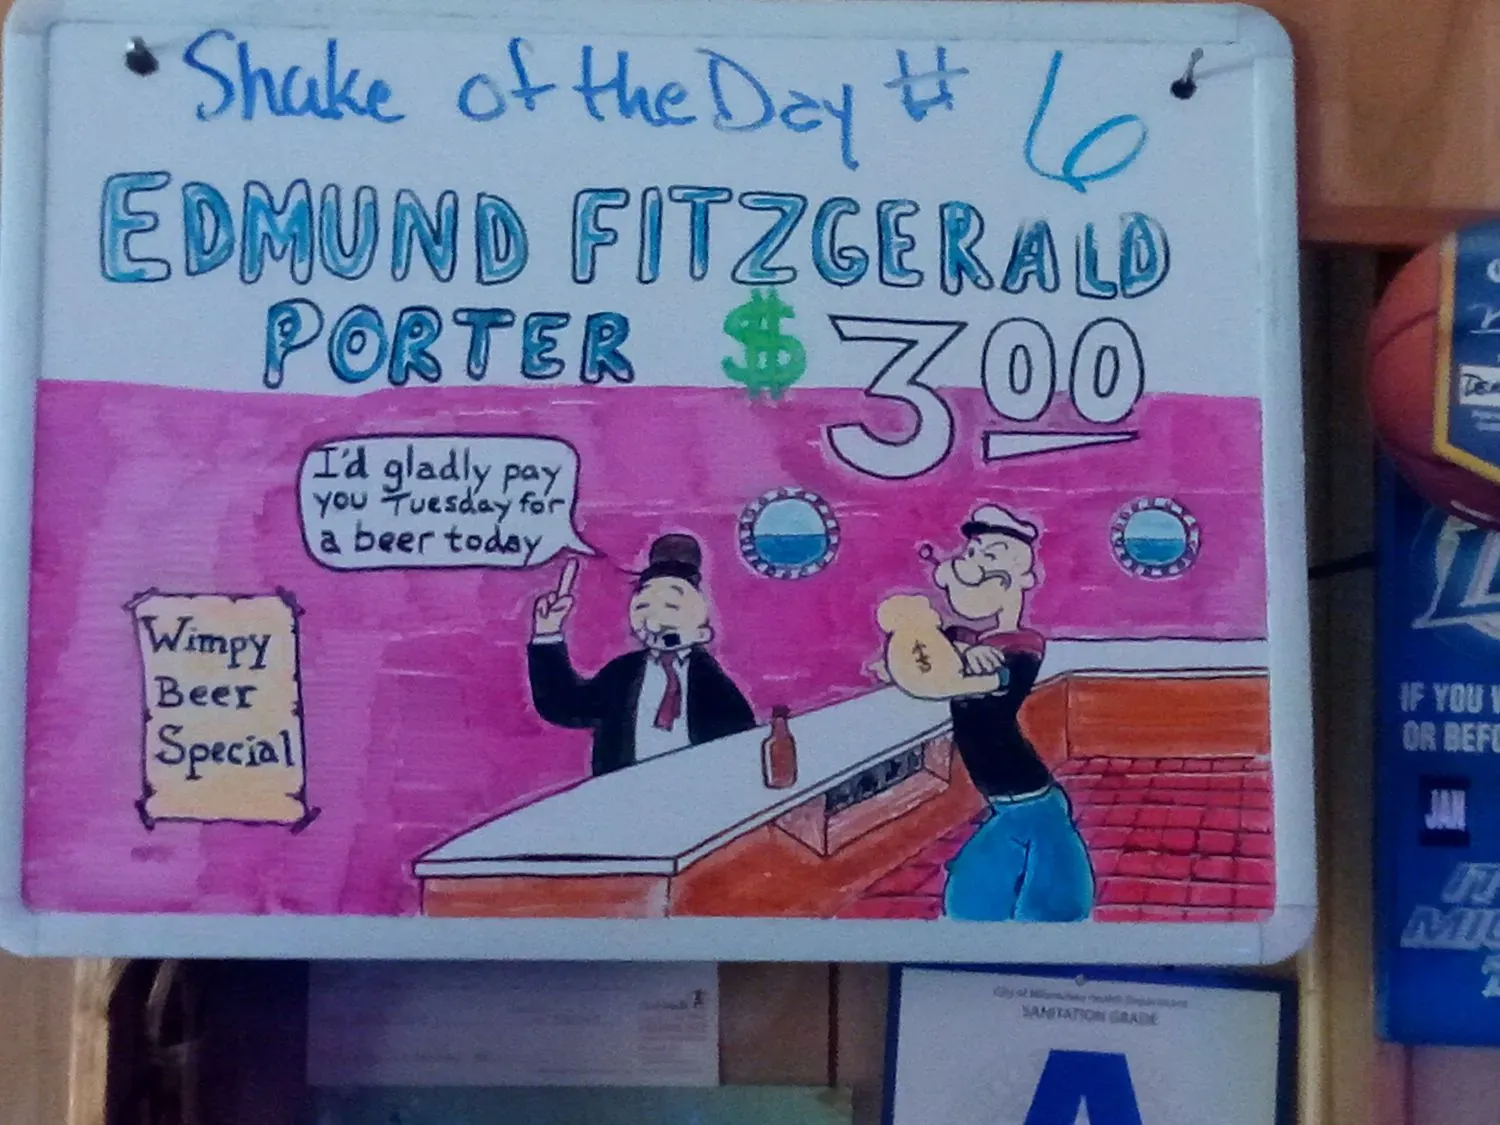 Shake of the Day # 6
EDMUND FITZGERALD
PORTER $3.00
I'd gladly pay
you Tuesday for
a beer today
Wimpy
Beer
Special
$
IF YOU
OR BEFO
JAN
City of Milwaukee Health Department
SANITATION GRADE
A